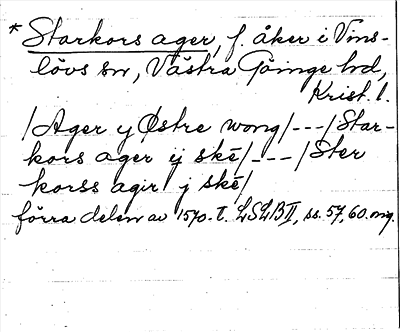 * Starkors ager, f. åker i Vins-
lövs sn, Västra Göinge hd,
Krist. l.
/Ager y Østre wong/---/Star-
kors ager ij skē/---/Ster
korss agir j skē/
förra delen av 1570-t. LSLB II, ss. 57, 60. mg.